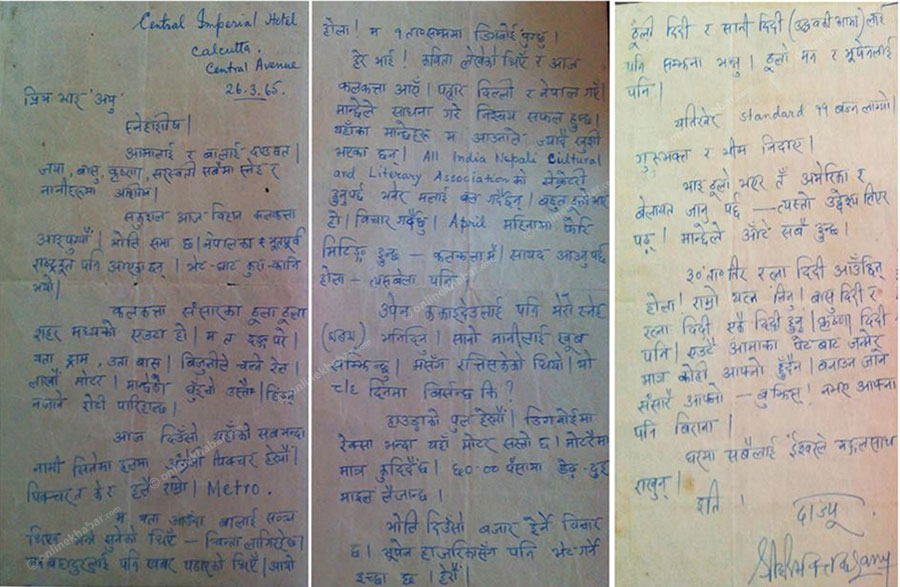 Central Imperial Hotel
Calcutta.
Central Avenue
26.3.65.
प्रिय भाइ 'अपु'
स्नेहाशीष।
आमालाई र बालाई दण्डवत।
जया, बासु, कृष्णा, सरस्वती सबैमा स्नेह र
नानीहरूमा
सकुशल आज बिहान कलकत्ता
आइपुग्यौं। भोलि सभा छ। नेपालका भूतपूर्व
राष्ट्रदूत पनि आएका छन्। भेट-घाट कुरा-कानि
भयो।
कलकत्ता संसारका ठूला ठूला
शहर मध्येको एउटा हो। म त छक्क परें।
यता ट्राम, उता बास। बिजुलीले चल्ने रेल।
लाखौं मोटर। मान्छेको उस्तै। हिंड्न
नजाने रोटी पारिहाल्छ।
आज दिउँसो यहाँको सबभन्दा
नामी सिनेमा हलमा पिक्चर हेर्‍यौं।
पिक्चर त के र हलै राम्रो। Metro.
म यता आउँदा बालाई सन्चो
थिएन भन्ने सुनेको थिएँ – चिन्ता लागिरहेछ।
बहादुरलाई पनि खबर पठाएको थिएँ। आयो
होला! म १ ताप्सम्ममा डिगबोई पुग्छु।
हेर भाई! कविता लेखेको थिएँ र आज
कलकत्ता आएँ। पोहोर दिल्ली र नेपाल गएँ।
मान्छेले साधना गरे निश्चय सफल हुन्छ।
यहाँका मान्छेहरू म आउनाले ज्यादै खुशी
भएका छन्। All India Nepali Cultural
and Literary Association को सेक्रेटरी
हुनुपर्छ भनेर मलाई कर गर्दैछन्। बहुत ठूलो भार
हो। विचार गर्दैछु। April महिनामा फेरि
मिटिङ्ग हुन्छ – कलकत्तामै। सायद आउनु पर्छ
होला – त्यसबेला पनि।
उपेन ककाइदेउलाई पनि मेरो स्नेह
भनिदिनु। सानो नानीलाई खूब
सम्झिन्छु। मसँग रत्तिसकेको थियो। यो
८/९ दिनमा बिर्सन्छ कि?
हाउडाको पुल हेर्‍यौं। डिगबोईमा
रेक्सा भन्दा यहाँ मोटर सस्तो छ। मोटरैमा
मात्र कुदिदैंछ। ६०.०० पैसामा डेढ-दुइ
माइल लैजान्छ।
भोलि दिउँसो बजार हेर्ने विचार
छ। भूपेन हाजरिकासँग पनि भेट गर्ने
इच्छा छ। हेरौं।
ठूली दिदी र सानी दिदी (उद्धवकी आमा) लाई
पनि सम्झना भन्नु। ठूलो मन र भूपेनलाई
पनि।
यतिखेर standard ११ बज्न लाग्यो।
गुरुभक्त र भीम निदाए।
भाइ ठूलो भएर तँ अमेरिका र
बेलायत जानु पर्छ – त्यस्तो उद्देश्य लिएर
पढ्। मान्छेले आँटे सबै हुन्छ।
३०।३१ तिर रत्ना दिदी आउँछिन्
होला। राम्रो यत्न लिनु। बासु दिदी र
रत्ना दिदी एकै दिदी हुन्। कृष्णा दिदी
पनि। एउटै आमाका पेट बाट जन्मेर
मात्र कोही आफ्नो हुँदैन। बनाउन जाने
संसारै आफ्नो – बुझिस्! नभए आफ्ना
पनि बिराना।
घरमा सबैलाई ईश्वरले मङ्गलसाथ
राखुन्।
इति।
दाज्यू
onlinekhabar.com